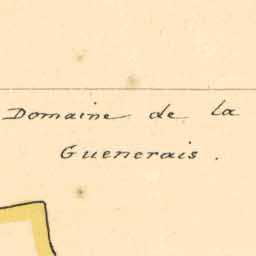 Domaine de la
Guenerais.